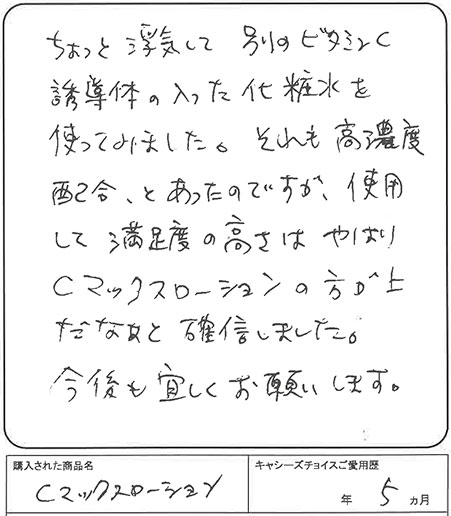 ちょっと浮気して 別のビタミンC
誘導体の入った化粧水を
使ってみました。それも高濃度
配合、とあったのですが、使用
して満足度の高さはやはり
Cマックスローションの方が上
だなぁと確信しました。
今後も宜しくお願いします。
購入された商品名
キャシーズチョイスご愛用歴
Cマックスローション
年 5 ヵ月